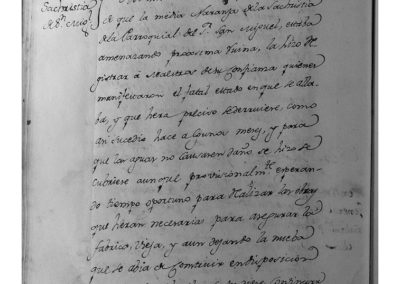 Sachristia
de Sn Mig
de que la media Naranja de la Sachristia
de la Parroquial de Sn San Miguel, estaba
amenazando proxsima Ruina, la hizo Re
gistrar á Maestros de su Confianza quienes
manifestaron el fatal estado en que se alla
ba, y que hera preciso se derruviese, como
asi sucedio hace algunos meses, y para
que las aguas no causasen daño, se hizo se
Cubriese aunque provisionalmte esperan-
do tiempo oportuno para Realizar las obras
que heran necesarias para asegurar la
fabrica, Vieja, y aun dejando la nueba
que se abia de Construir en disposicion